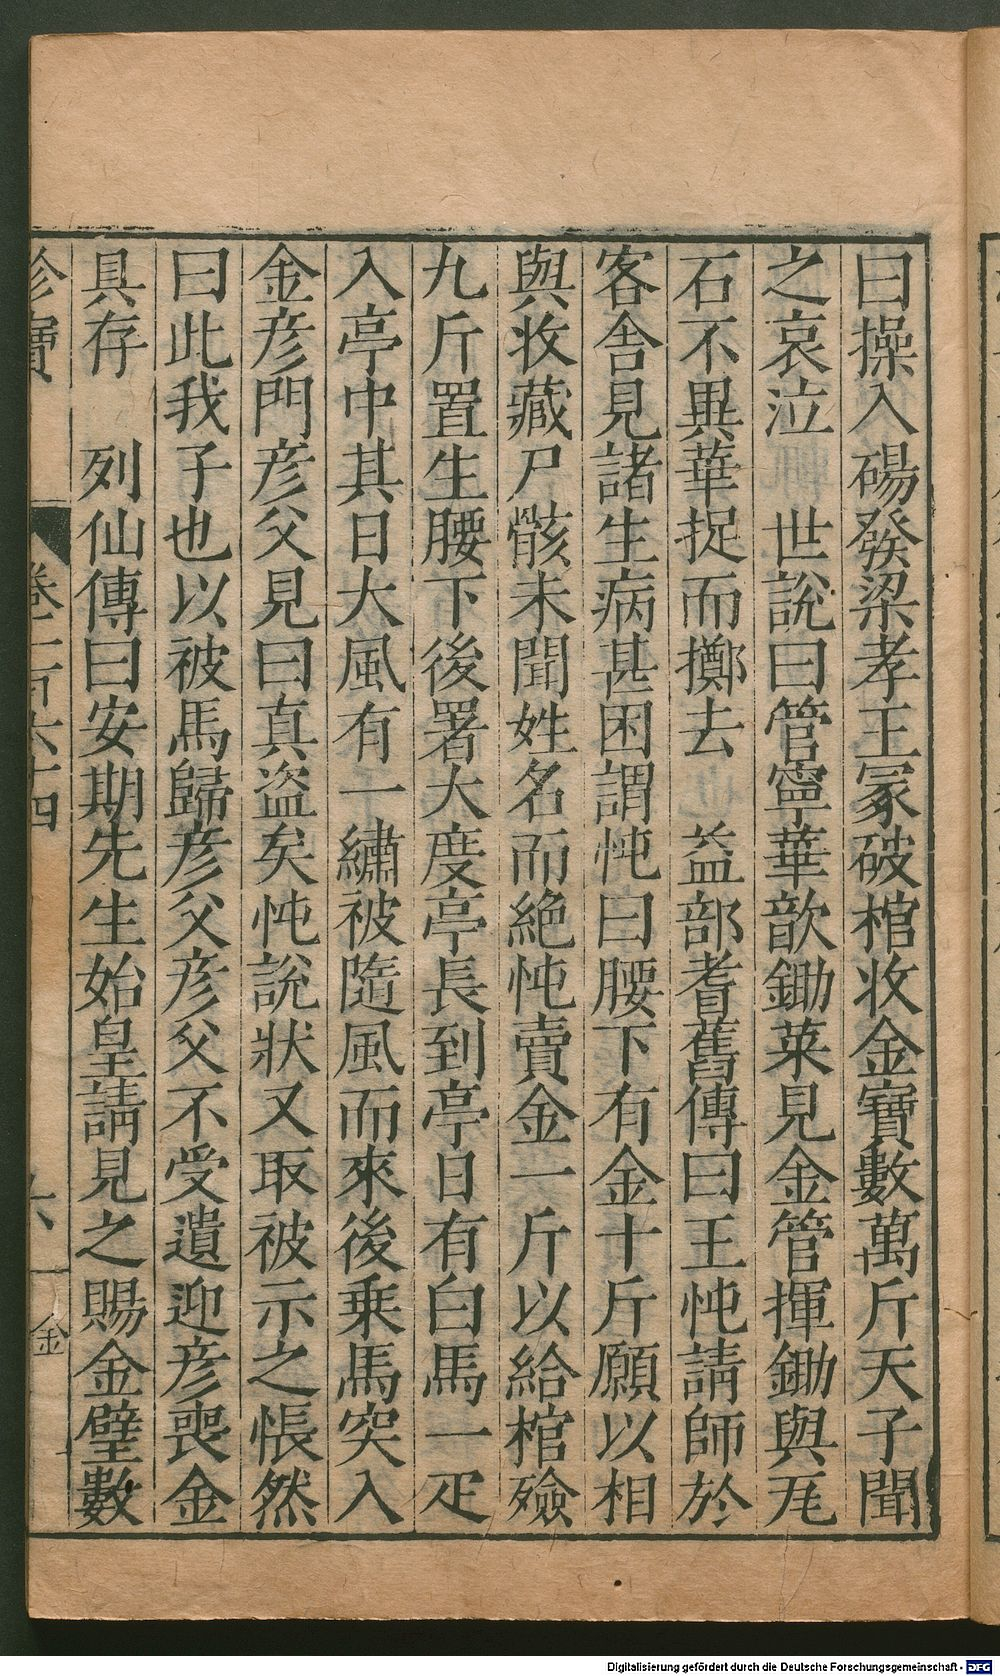 曰操入碭發梁孝王冢破棺收金寶數萬斤天子聞
之哀泣　世說曰管寧華歆鋤菜見金管揮鋤與瓦
石不異華捉而擲去　益部耆舊傳曰王忳請師於
客舍見諸生病甚困謂忳曰腰下有金十斤願以相
與收藏尸骸未聞姓名而絕忳賣金一斤以給棺殮
九斤置生腰下後署大度亭長到亭日有白馬一疋
入亭中其日大風有一繡被隨風而來後乗馬突入
金彥門彥父見曰真盜矣忳說狀又取被示之悵然
曰此我子也以被馬歸彥父彥父不受遺迎彥喪金
具存　列仙傳曰安期先生始皇請見之賜金璧數
珍寶　卷三百六十四　十八　金
Digitalisierung gefördert durch die Deutsche Forschungsgemeinschaft - DFG